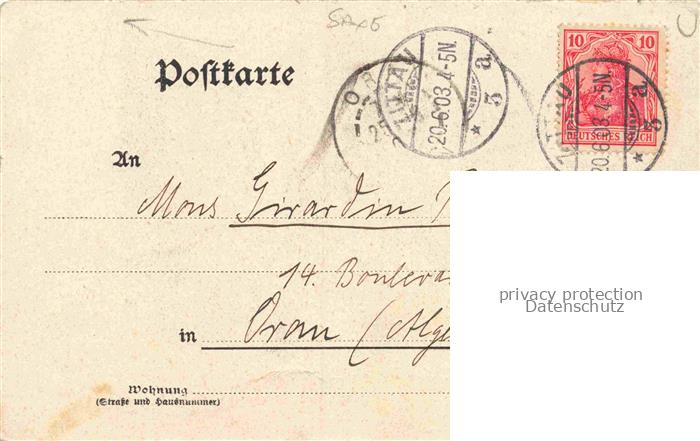 SAXE
Postkarte
ZITTAU
20.6.03.4-5N.
* 3 a
ORAN
25
10
DEUTSCHES REICH
ZITTAU
20.6.03.4-5N.
* 3 a
An
Mons Girardin
14. Bouleva
privacy protection
Datenschutz
in Oran (Alge
Wohnung
(Straße und Hausnummer)